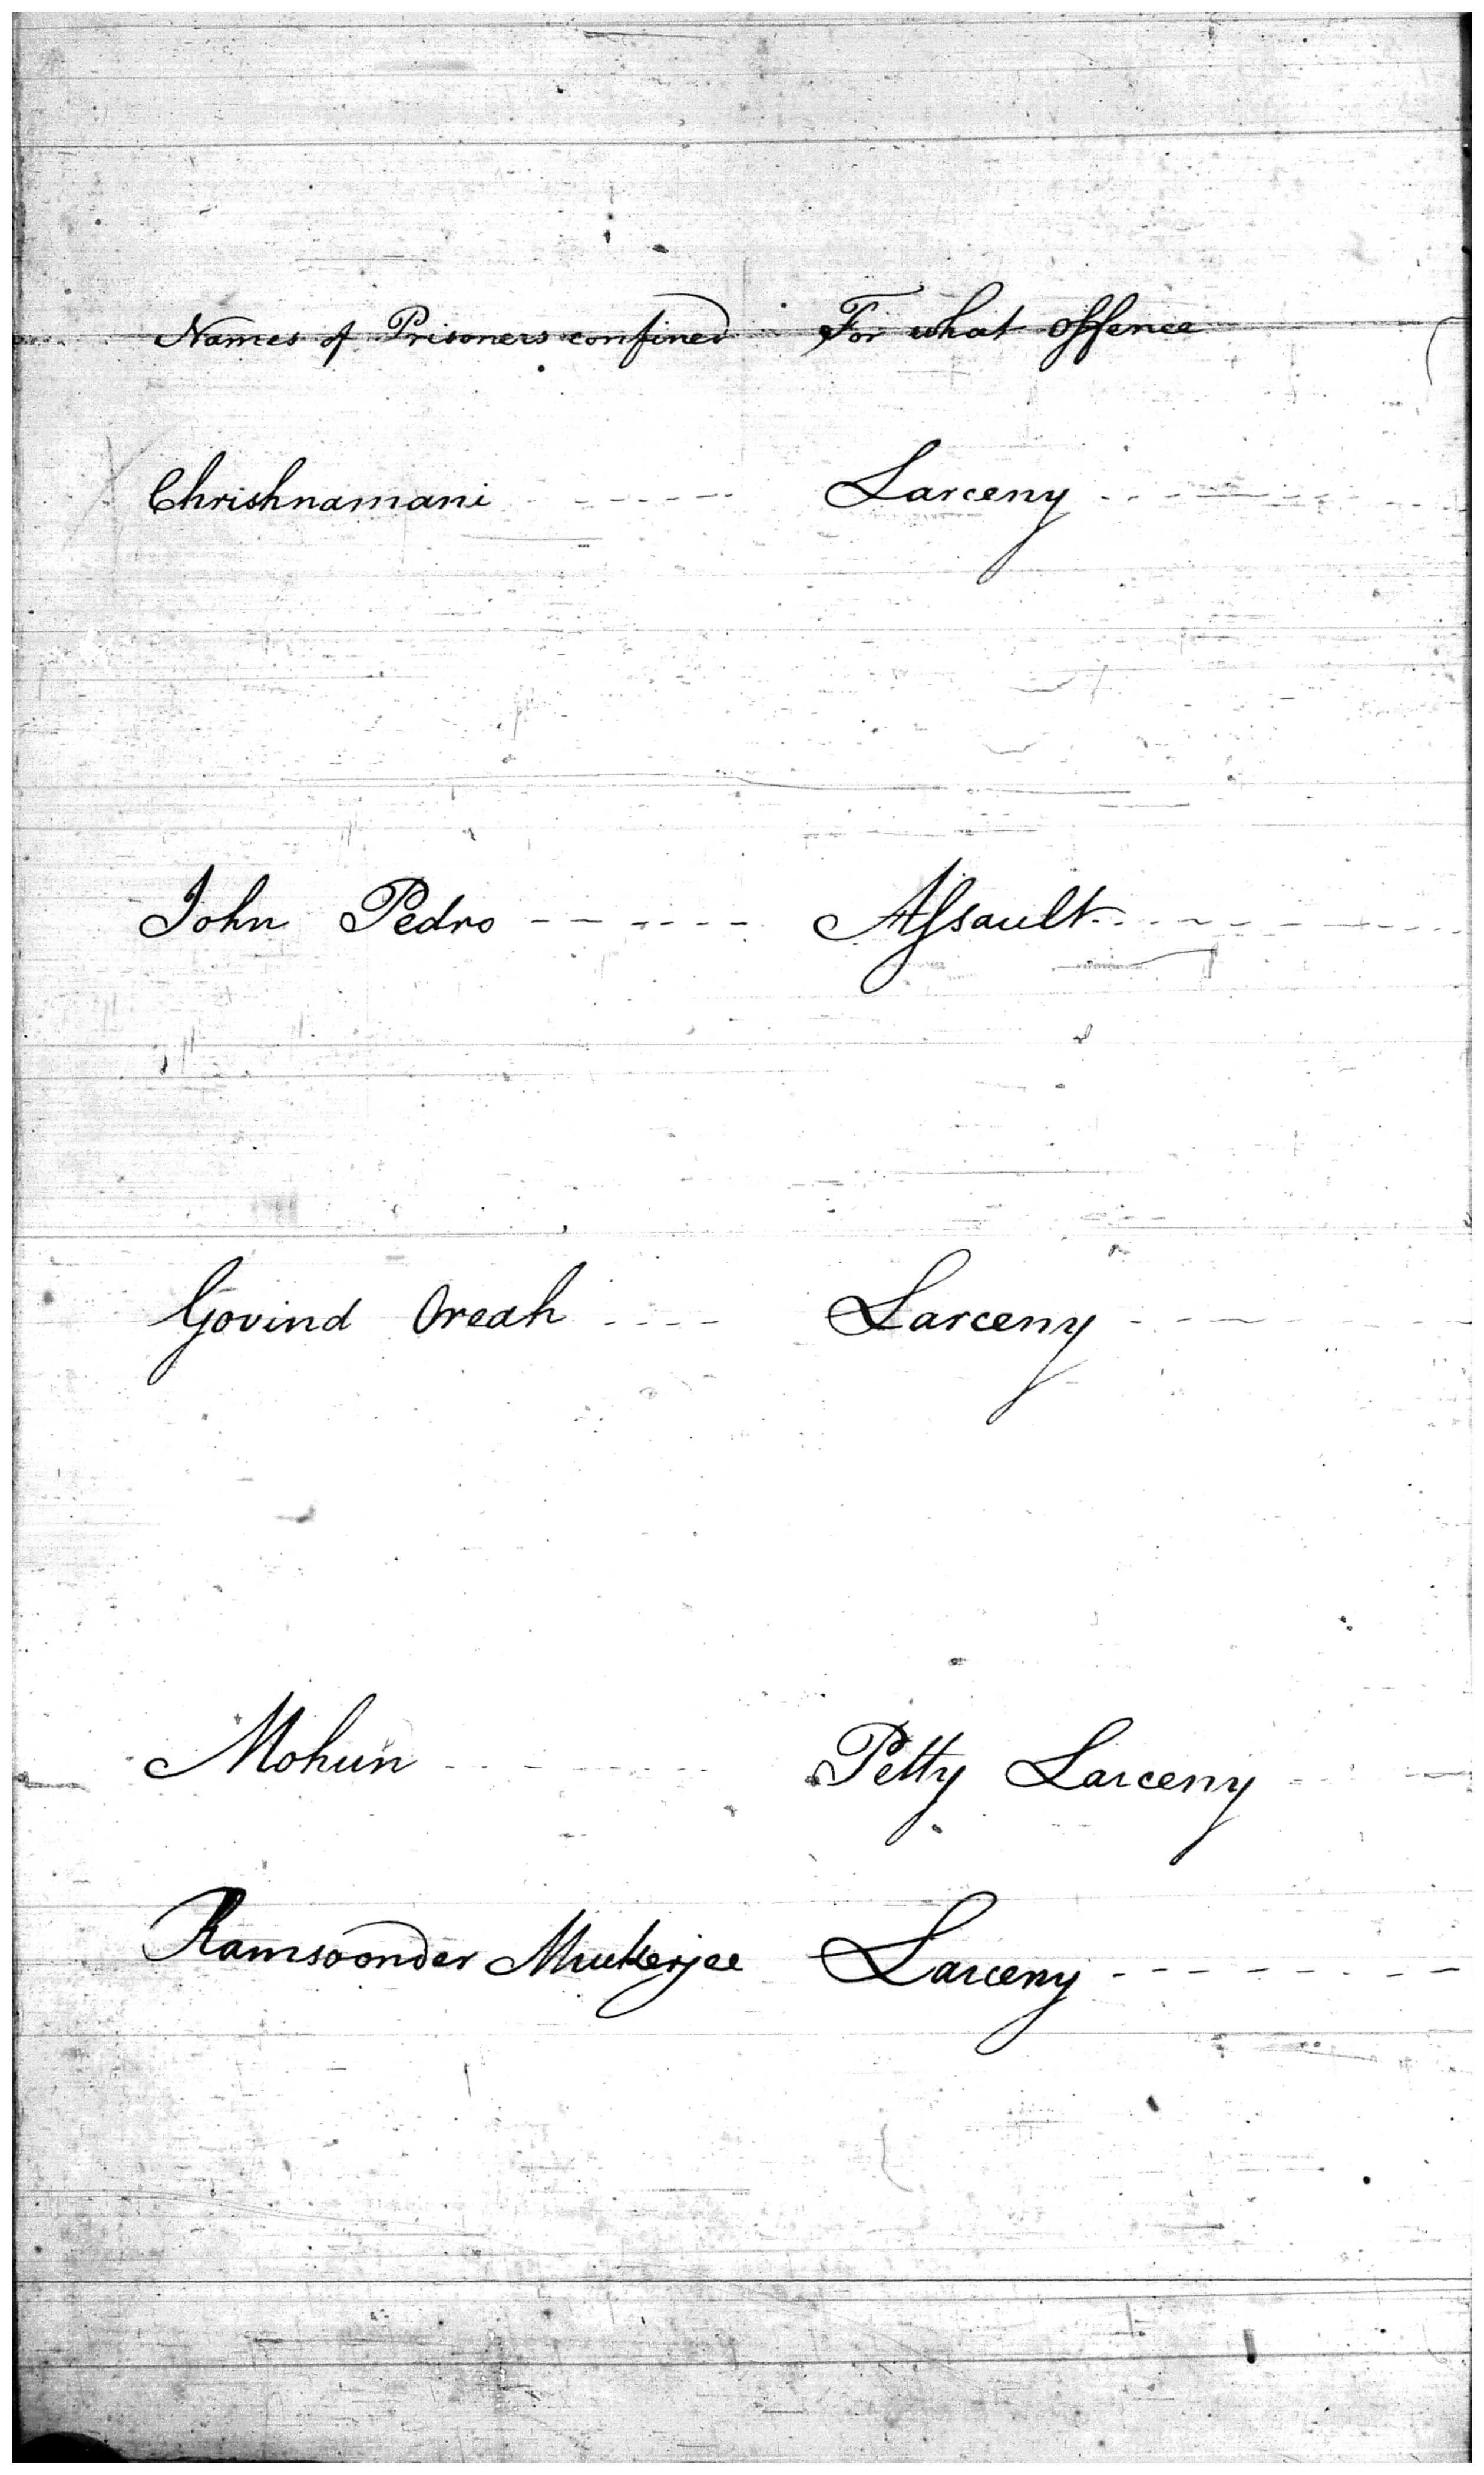 Names of Prisoners confined For what offence
Chrishnamani ------ Larceny --------
John Pedro ------ Assault --------
Govind Oreah ---- Larceny --------
Mohun ------ Petty Larceny ----
Ramsoonder Mukerjee Larceny --------